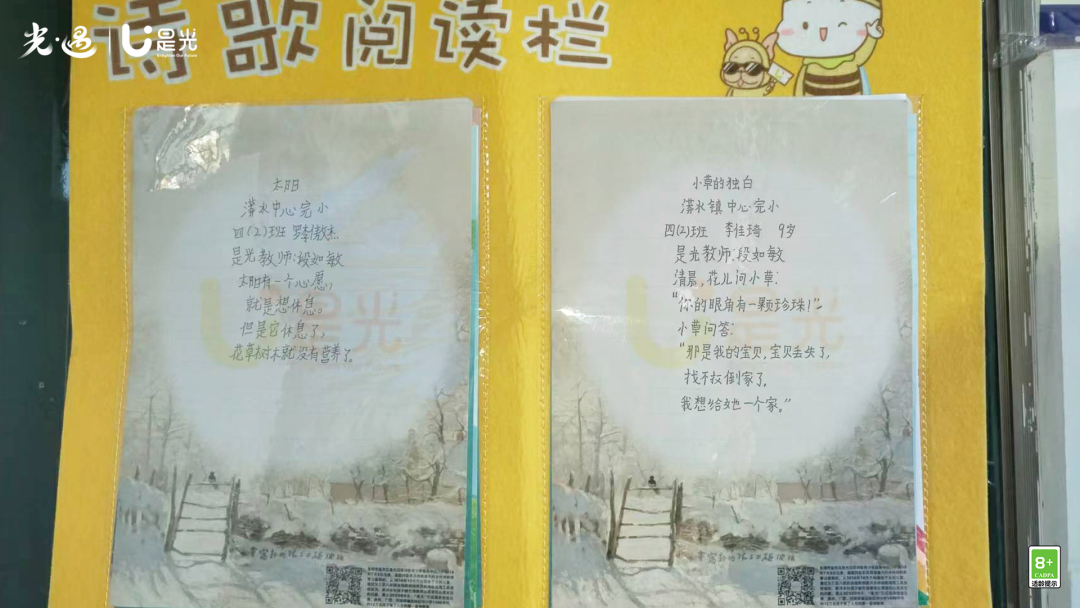 光·遇
是光
诗歌阅读栏
太阳
漾水中心完小
四(2)班 罗傲杰
是光教师:段如敏
太阳有一个心愿,
就是想休息。
但是它休息了,
花草树木就没有营养了。
是光
小草的独白
漾水镇中心完小
四(2)班 李佳琦 9岁
是光教师:段如敏
清晨,花儿问小草:
“你的眼角有一颗珍珠!”
小草问答:
“那是我的宝贝,宝贝丢失了,
找不找倒家了,
我想给她一个家。”
是光
8+
CADPA
适龄提示